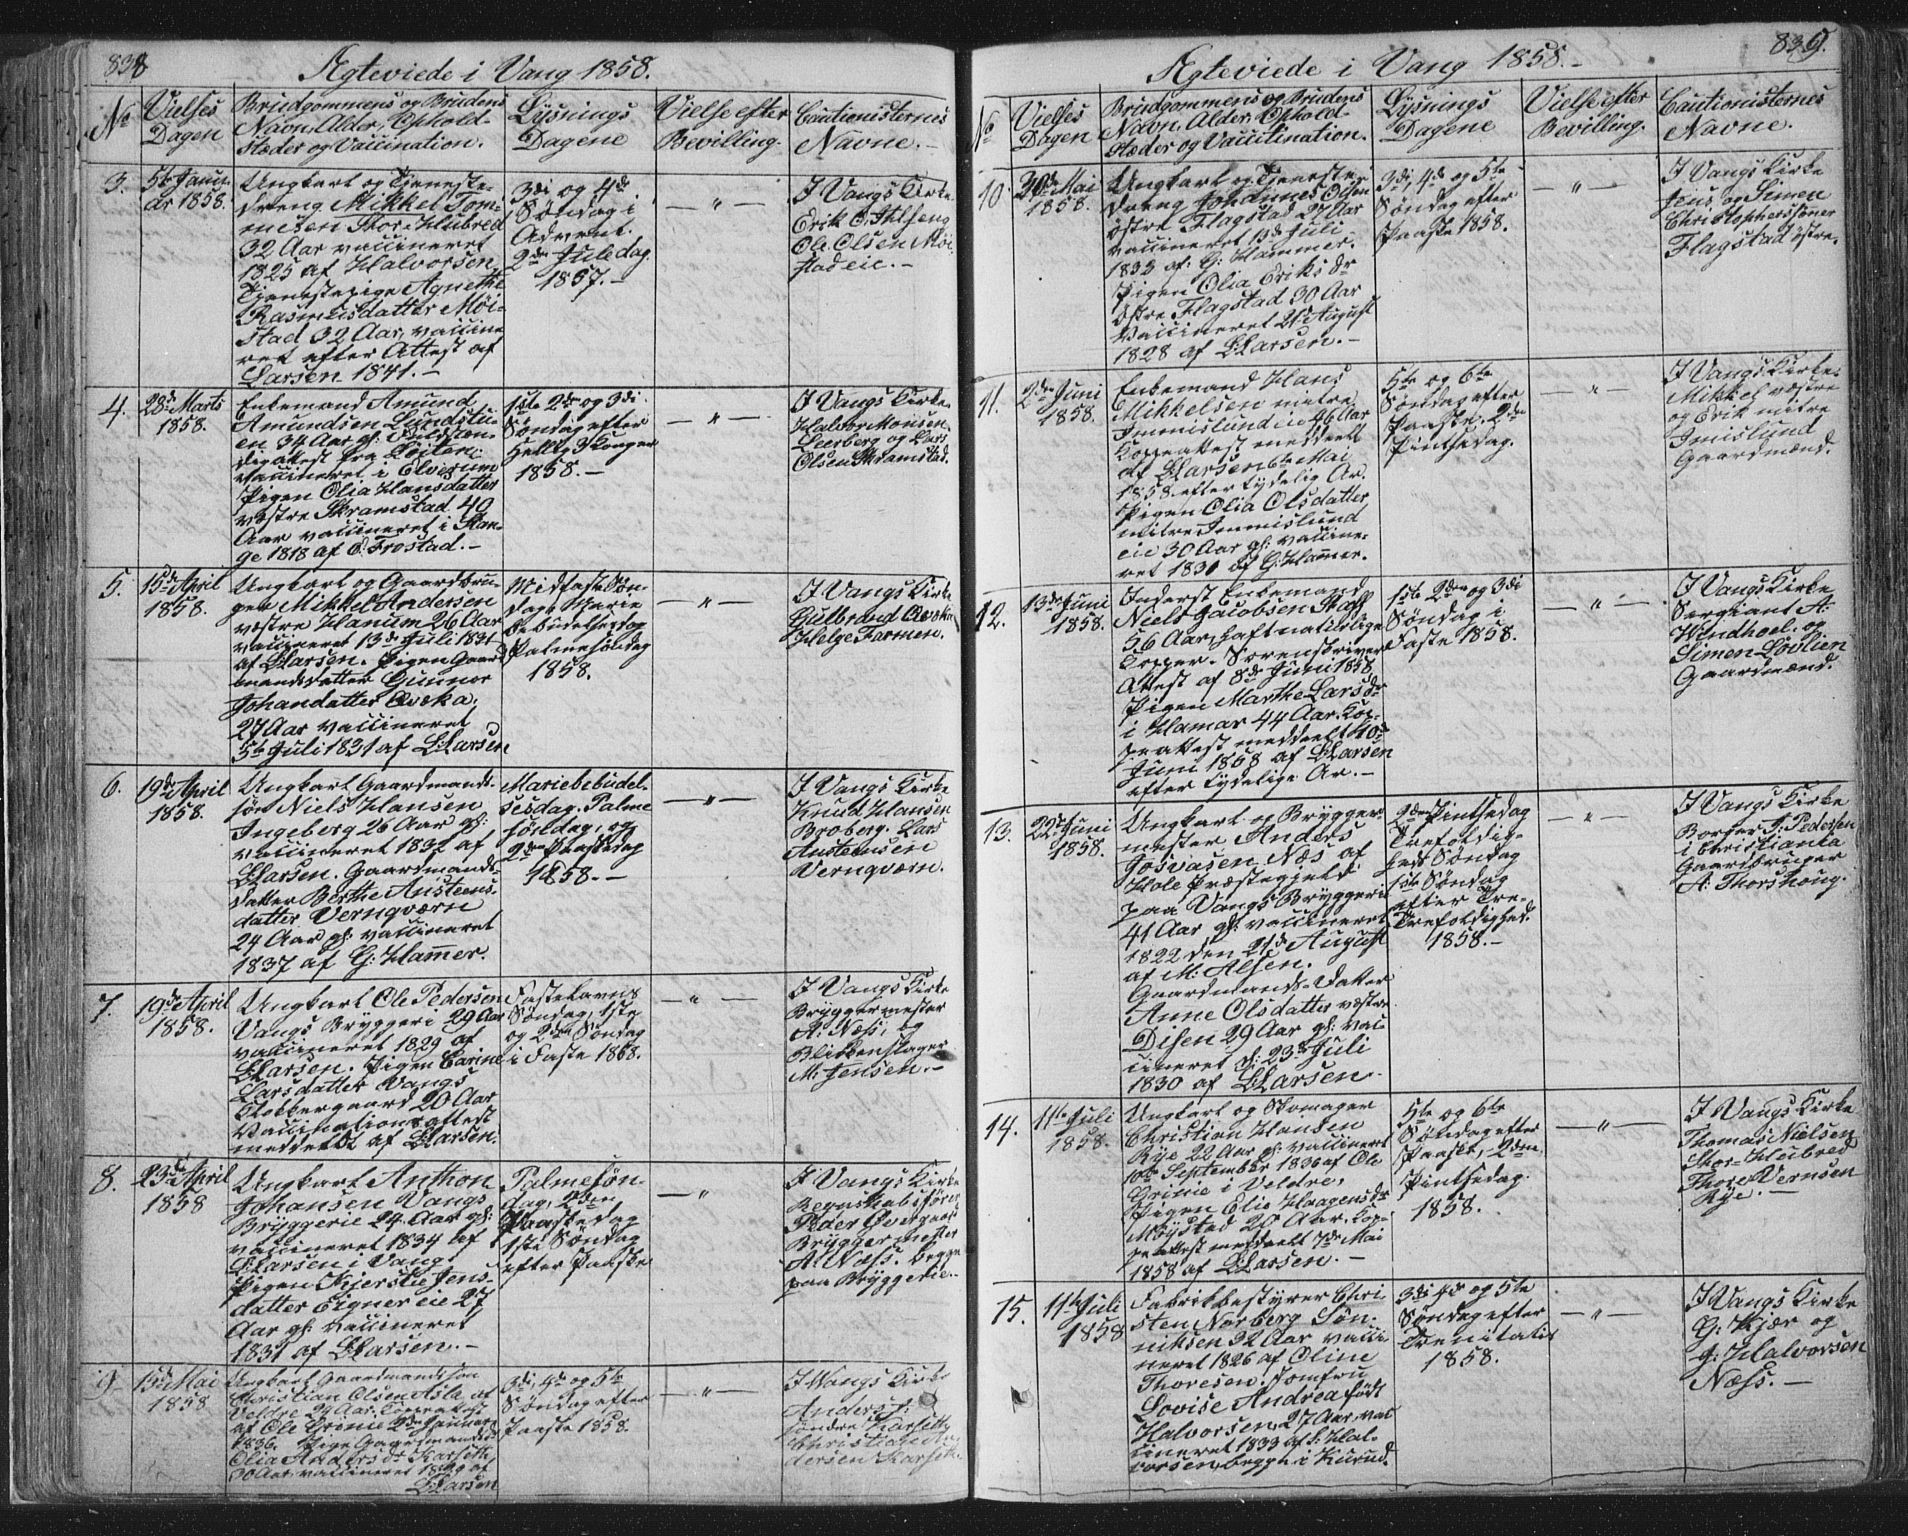 838
Ægteviede i Vang 1858.
No
Vielses
Dagen
Brudgommens og Brudens
Navn, Alder, Ophold-
stæder og Vaccination.
Lysnings
Dagene
Vielse efter
Bevilling.
Cautionisternes
Navne.
3.
5te Janu-
ar 1858.
Ungkarl og Tjeneste-
dreng Mikkel Tom-
mesen Thor-Hubred
32 Aar vaccineret
1825 af Halvorsen
Tjenestepige Agnethe
Rasmusdatter Møi-
stad 32 Aar, vaccine
ret efter Attest af
Larsen 1841.
3di og 4de
Søndag i
Advent.
2den Juledag.
1857.
— " —
I Vangs Kirke
Erik O. Stlseng
Ole Olsen Møi
stadeie.
4.
28de Marts
1858.
Enkemand Amund
Amundsen Lundstu-
en 34 Aar gl. Fuldstæn-
dig attest fra Løiten
vaccineret i Elverum
Pigen Olia Hansdatter
vestre Skramstad 40
Aar vaccineret i Stan-
ge 1818 af O. Frostad.
1ste 2den og 3di
Søndag efter
Hellig 3 Konger
1858.
— " —
I Vangs Kirke
Halvor Monsen
Lierberg og Lars
Olsen Skramstad.
5.
15de April
1858.
Ungkarl og Gaardbru-
ger Mikkel Andersen
vestre Hanum 26 Aar
vaccineret 13de Juli 1831
af LLarsen. Pigen Gaard
mandsdatter Gunnor
Johandatter Qveka,
27 Aar vaccineret
5te Juli 1831 af LLarsen
Midfaste Søn-
dag, Marie
Bebudelsesdag
Palmesøndag
1858.
— " —
I Vangs Kirke
Gulbrand Qveka
Helge Farmen.
6.
19de April
1858.
Ungkarl Gaardmands-
søn Niels Hansen
Ingeberg 26 Aar gl:
vaccineret 1832 af
LLarsen. Gaardmands-
datter Berthe Austeens-
datter Vernqværn
24 Aar gl: vaccineret
1837 af G: Hammer.
Mariebebudel-
sesdag, Palme
søndag, og
2den Paaskedag
1858.
— " —
I Vangs Kirke
Knud Hansen
Broberg. Lars
Austeensen
Vernqværn.
7.
19de April
1858.
Ungkarl Ole Pedersen
Vangs Bryggeri 29 Aar
vaccineret 1829 af
LLarsen. Pigen Carine
Larsdatter Vangs
Klokkergaard 20 Aar
Vaccinationsattest
meddeelt af LLarsen.
Fastelavns
Søndag, 1ste
og 2den Søndag
i Faste 1858.
— " —
I Vangs Kirke
Bryggermester
A: Næss, og
Blikkenslager
M: Jensen.
8.
23de April
1858
Ungkarl Anthon
Johansen Vangs
Bryggerie 24 Aar gl:
vaccineret 1834 af
LLarsen i Vang.
Pigen Kjerstie Jens-
datter Eigner eie 27
Aar gl: vaccineret
1831 af LLarsen.
Palmesøn-
dag, 2den
Paaskedag
1ste Søndag
efter Paaske
— " —
I Vangs Kirke
Regnskabsfører
Peder Overgaard
Bryggermester
A: Næss. begge
paa Bryggerie.
9
13de Mai
1858
Ungkarl Gaardmandssøn
Christian Olsen Asle af
Veldre 24 Aar. Koppeattest
af Ole Grinie 2den Januar
1836. Pige Gaardmandsd
Olia Andersdr Karseth
30 Aar vaccineret af
LLarsen
3di 4de og 5te
Søndag efter
Paaske 1858.
— " —
I Vangs Kirke
Anders J.
søndre Karseth
Christian An-
dersen Karseth.
839.
Ægteviede i Vang 1858.
No
Vielses
Dagen
Brudgommens og Brudens
Navn, Alder, Ophold-
stæder og Vaccination.
Lysnings
Dagene
Vielse efter
Bevilling.
Cautionisternes
Navne.
10.
30de Mai
1858.
Ungkarl og Tjeneste-
dreng Johannes Olsen
østre Flagstad 27 Aar
vaccineret 13de Juli
1833 af: G: Hammer.
Pigen Olia Eriksdr
østre Flagstad 30 Aar
vaccineret 21de August
1828 af LLarsen.
3di, 4de og 5te
Søndag efter
Paaske 1858.
— " —
I Vangs Kirke
Jens og Simen
Christophersønner
Flagstad østre.
11.
2den Juni
1858.
Enkemand Hans
Mikkelsen mitre
Immislund eie 46 Aar
Koppeattest meddeelt
af LLarsen 6te Mai
1858 efter tydelig Ar.
Pigen Olia Olsdatter
mitre Immislund
eie 30 Aar gl: vaccine-
ret 1830 af G: Hammer.
5te og 6te
Søndag efter
Paaske, 2den
Pintsedag.
— " —
I Vangs Kirke
Mikkel vestre
og Erik mitre
Imislund
Gaardmænd.
12.
13de Juni
1858.
Inderst Enkemand
Niels Jacobsen Skoff
56 Aar, haft naturlige
Kopper. Sorenskriver
Attest af 8de Juni 1858
Pigen Marthe Larsdr
i Hamar 44 Aar. Kop-
peattest meddeelt 10de
Juni 1858 af LLarsen
efter tydelige Ar.
1ste 2den og 3di
Søndag i
Faste 1858.
— " —
I Vangs Kirke
Sergiant A:
Windhoel. og
Simen Løvlien
Gaardmænd.
13.
22de Juni
1858.
Ungkarl og Brygger
mester Anders
Josvasen Næs af
Hole Præstegjeld
paa Vangs Bryggerie
41 Aar gl: vaccineret
1822 den 21de August
af M: Alsen.
Gaardmands-Datter
Anne Olsdatter vestre
Disen 29 Aar gl: vac-
cineret d: 23de Juli
1830 af LLarsen.
2den Pintsedag
Trefoldig-
heds Søndag
1ste Søndag
efter Tre-
Trefoldighed.
1858.
— " —
I Vangs Kirke
Borger P. Pedersen
i Christiania
Gaardbruger
A: Thorshoug.
14.
11te Juli
1858.
Ungkarl og Skomager
Christian Hansen
Rye 22 Aar gl: vaccineret
10de September 1836 af Ole
Grinie i Veldre,
Pigen Elie Haagensdr
Møystad 20 Aar. Kop-
peattest meddeelt 7de Mai
1858 af LLarsen.
5te og 6te
Søndag efter
Paaske, 2den
Pintsedag.
1858.
— " —
I Vangs Kirke
Thomas Nielsen
Thor-Hubred
Thore Vernsen
Rye.
15.
11te Juli
1858
Fabrikbestyrer Chri-
sten Norberg Søn-
niksen 32 Aar vacci
neret 1826 af Oline
Thoresen. Jomfru
Lovise Andrea født
Halvorsen, 27 Aar, vac
cineret 1833 af S. Hal-
vorsen, begge i Kurud.
3di 4de og 5te
Søndag efter
Trenitatis
1858.
— " —
I Vangs Kirke
G: Kjær og
G: Halvorsen
Næss.